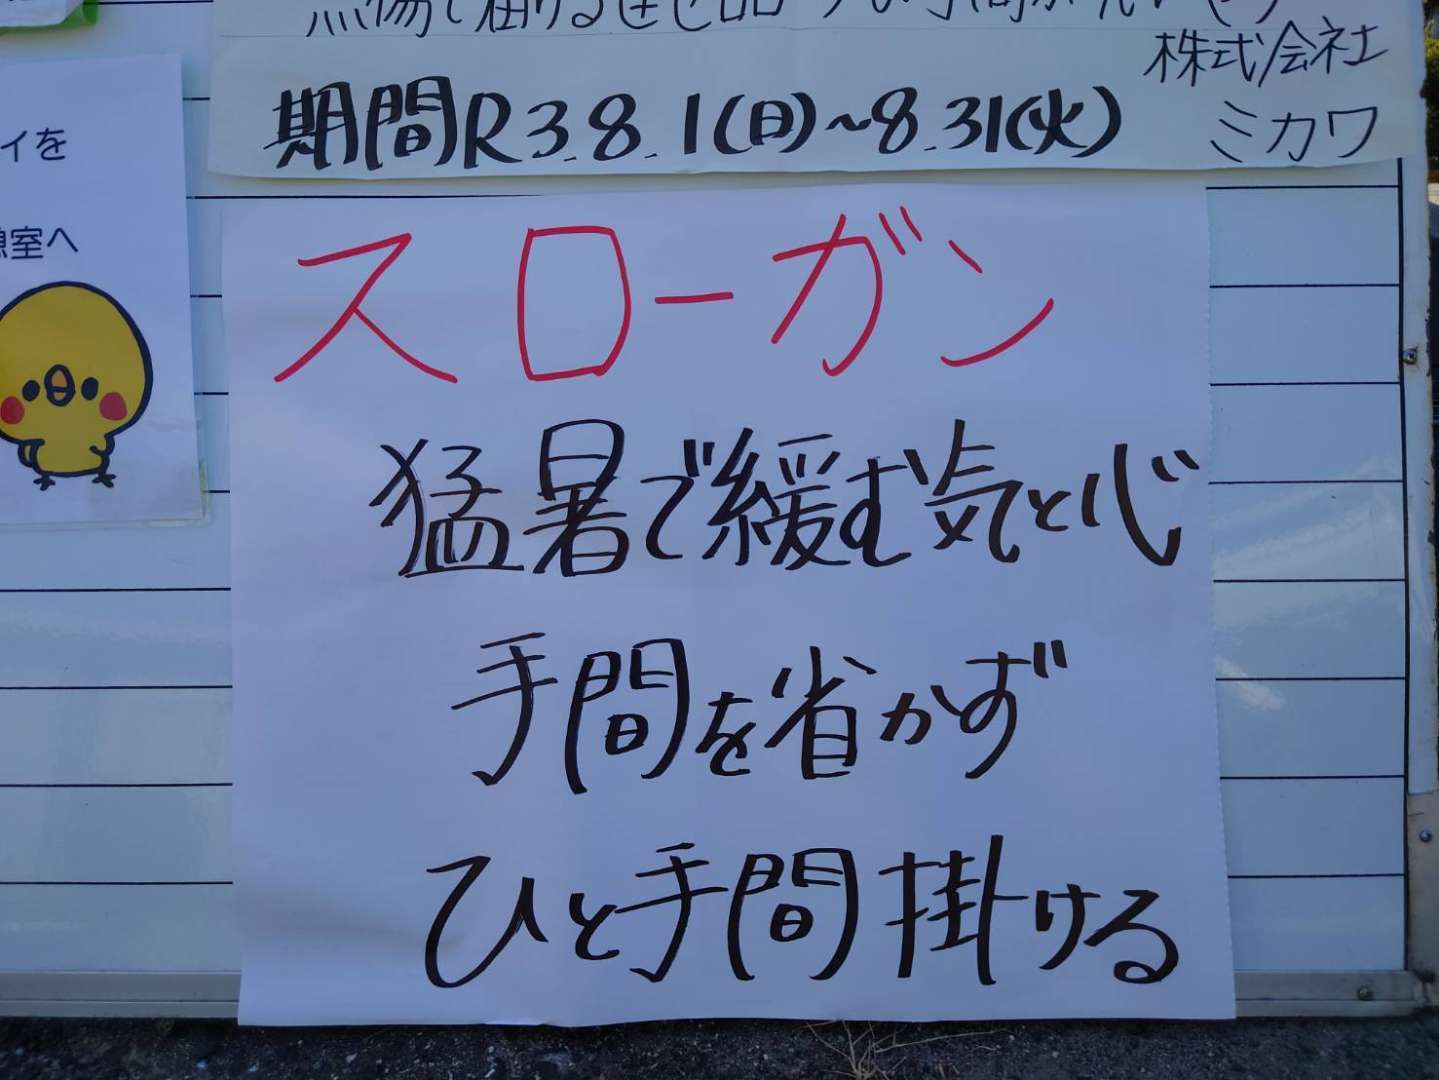 株式会社
期間R3.8.1(日)~8.31(火)
ミカワ
イを
室へ
スローガン
猛暑で緩む気と心
手間を省かず
ひと手間掛ける